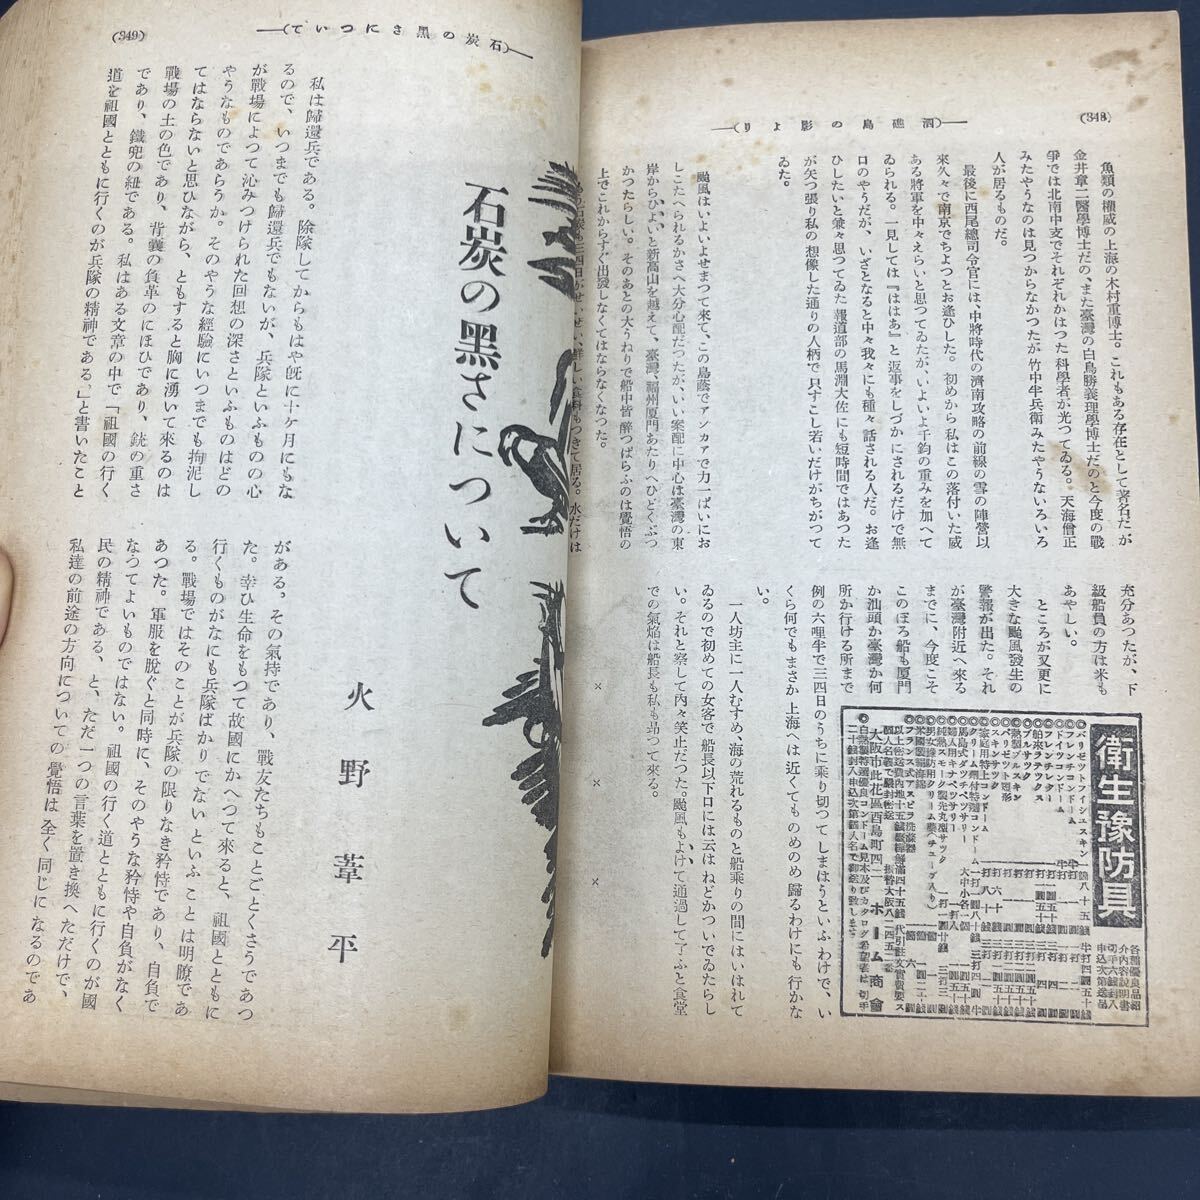 (348)
―(泗礁島の影より)―
魚類の權威の上海の木村重博士。これもある存在として著名だが
金井章二醫學博士だの、また臺灣の白鳥勝義理學博士だのと今度の戰
爭では北南中支でそれぞれかはつた科學者が光つてゐる。天海僧正
みたやうなのは見つからなかつたが竹中半兵衛みたやうないろいろ
人が居るものだ。
最後に西尾總司令官には、中將時代の濟南攻略の前線の雪の陣營以
來久々で南京でちよつとお逢ひした。初めから私はこの落付いた威
ある將軍を中々えらいと思つてゐたが、いよいよ千鈞の重みを加へて
ゐられる。一見しては『ははあ』と返事をしづかにされるだけで無
口のやうだが、いざとなると中々我々にも種々話される人だ。お逢
ひしたいと兼々思つてゐた報道部の馬淵大佐にも短時間ではあつた
が矢つ張り私の想像した通りの人柄で只すこし若いだけがちがつて
ゐた。
颱風はいよいよせまつて來て、この島蔭でアンカアで力一ぱいにお
しこたへられるかさへ大分心配だつたが、いい案配に中心は臺灣の東
岸からひよいと新高山を越えて、臺灣、福州厦門あたりへひどくぶつ
かつたらしい。そのあとの大うねりで船中皆醉つぱらふのは覺悟の
上でこれからすぐ出發しなくてはならなくなつた。
石炭も三四日がせいぜい、鮮しい食料もつきて居る。水だけは
充分あつたが、下
級船員の方は米も
あやしい。
ところが又更に
大きな颱風發生の
警報が出た。それ
が臺灣附近へ來る
までに、今度こそ
このぼろ船も厦門
か汕頭か臺灣か何
所か行ける所まで
例の六哩半で三四日のうちに乘り切つてしまはうといふわけで、い
くら何でもまさか上海へは近くてものめのめ歸るわけにも行かな
い。
一人坊主に一人むすめ、海の荒れるものと船乘りの間にはいはれて
ゐるので初めての女客で船長以下口には云はねどかついでゐたらし
い。それと察して内々笑止だつた。颱風もよけて通過して了ふと食堂
での氣焰は船長も私も昂つて來る。
衛生豫防具
各種優良品紹
介内容説明書
切手六錢封入
申込次第送品
大阪市此花區西島町四二 ホーム商會
(349)
―(石炭の黑さについて)―
石炭の黑さについて
火野葦平
私は歸還兵である。除隊してからもはや旣に十ケ月にもな
るので、いつまでも歸還兵でもないが、兵隊といふものの心
が戰場によつて沁みつけられた回想の深さといふものはどの
やうなものであらうか。そのやうな經驗にいつまでも拘泥し
てはならないと思ひながら、ともすると胸に湧いて來るのは
戰場の土の色であり、背嚢の負革のにほひであり、銃の重さ
であり、鐵兜の紐である。私はある文章の中で「祖國の行く
道を祖國とともに行くのが兵隊の精神である。」と書いたこと
がある。その氣持であり、戰友たちもことごとくさうであつ
た。幸ひ生命をもつて故國にかへつて來ると、祖國とともに
行くものがなにも兵隊ばかりでないといふことは明瞭であ
る。戰場ではそのことが兵隊の限りなき矜恃であり、自負で
あつた。軍服を脫ぐと同時に、そのやうな矜恃や自負がなく
なつてよいものではない。祖國の行く道とともに行くのが國
民の精神である、と、ただ一つの言葉を置き換へただけで、
私達の前途の方向についての覺悟は全く同じになるのであ